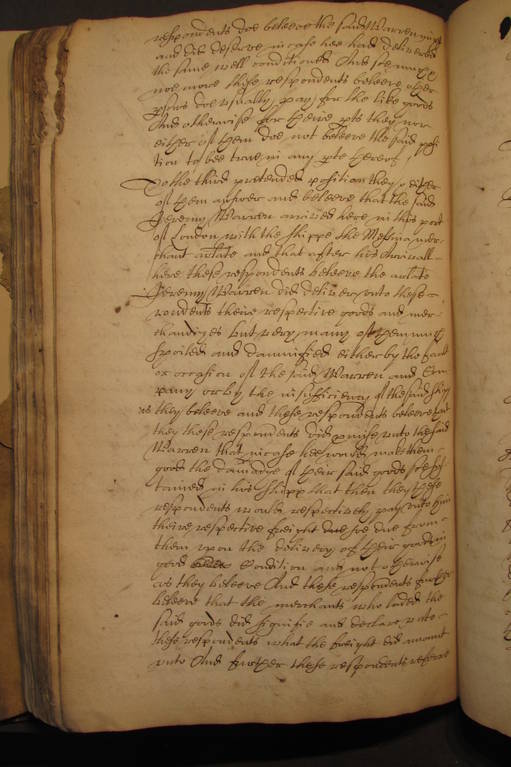 respondents doe beleeve the said Warren might
and did deserve in case hee had delivered
the same well conditioned And soe much
noe more these respondents beleeve other
doe usually pay for the like goods
And otherwise for theire pts they nor
either of them doe not beleeve the said posi
tion to bee true in any pte thereof
To the third pretended position they & either
of them answer and beleeve that the said
Jeremy Warren arrived here in this port
of London with the shippe the Messina mer
chant arlate and that after his arrivall
here these respondents beleeve the arlate
Jeremy Warren did deliver unto these
respondents theire respective goods and mer
chandizes but very many of them much
spoiled and damnified either by the fault
or occasion of the said Warren and Com
pany or by the insufficiency of the said shipp
as they beleeve and these respondents beleeve that
they these respondents did promise unto the said
Warren that in case hee would make them
good the damage of their said goods soe sus
tained in his shipp that then they these
respondents would respectively pay unto him
theire respective freight due soe due from
them upon the delivery of their goods in
good Condition and not otherwise
as they beleeve And these respondents further
beleeve that the merchants who laded the
said goods did signifie and declare unto
these respondents what the freight did amount
unto And further these respondents referre